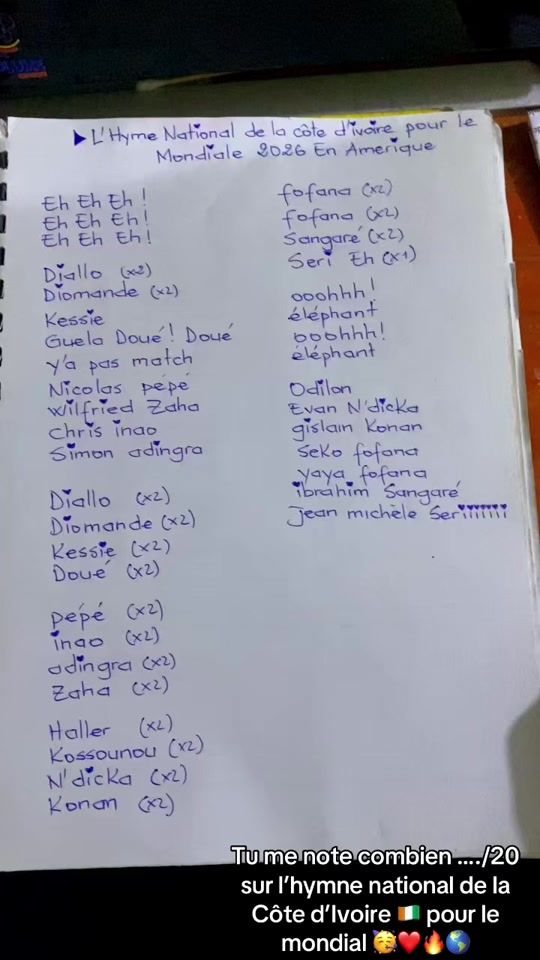 ▶ L'Hyme National de la côte d'ivoire pour le
Mondiale 2026 En Amerique
Eh Eh Eh !
Eh Eh Eh !
Eh Eh Eh !
Diallo (x2)
Diomande (x2)
Kessie
Guela Doué ! Doué
y'a pas match
Nicolas pépé
Wilfried Zaha
Chris inao
Simon adingra
Diallo (x2)
Diomande (x2)
Kessie (x2)
Doué (x2)
pépé (x2)
inao (x2)
adingra (x2)
Zaha (x2)
Haller (x2)
Kossounou (x2)
N'dicka (x2)
Konan (x2)
fofana (x2)
fofana (x2)
Sangaré (x2)
Seri Eh (x1)
ooohhh !
éléphant
ooohhh !
éléphant
Odilon
Evan N'dicka
gislain Konan
Seko fofana
yaya fofana
ibrahim Sangaré
jean michèle Seriiiiiii
Tu me note combien ..../20
sur l'hymne national de la
Côte d'Ivoire 🇨🇮 pour le
mondial 🥳❤️🔥🌎